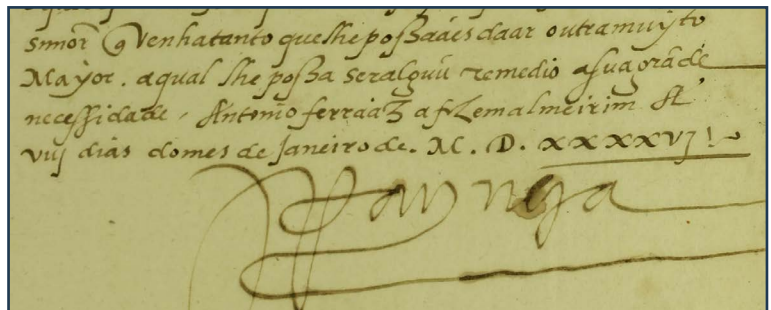 snnor q Venha tanto que lhe possaaes daar outra muyto
Mayor . a qual lhe possa ser alguũ remedio a sua grãde
necessidade , Antonio ferraaz a fez em almeirim A
viij dias do mes de Janeiro de . M . D . xxxxvj